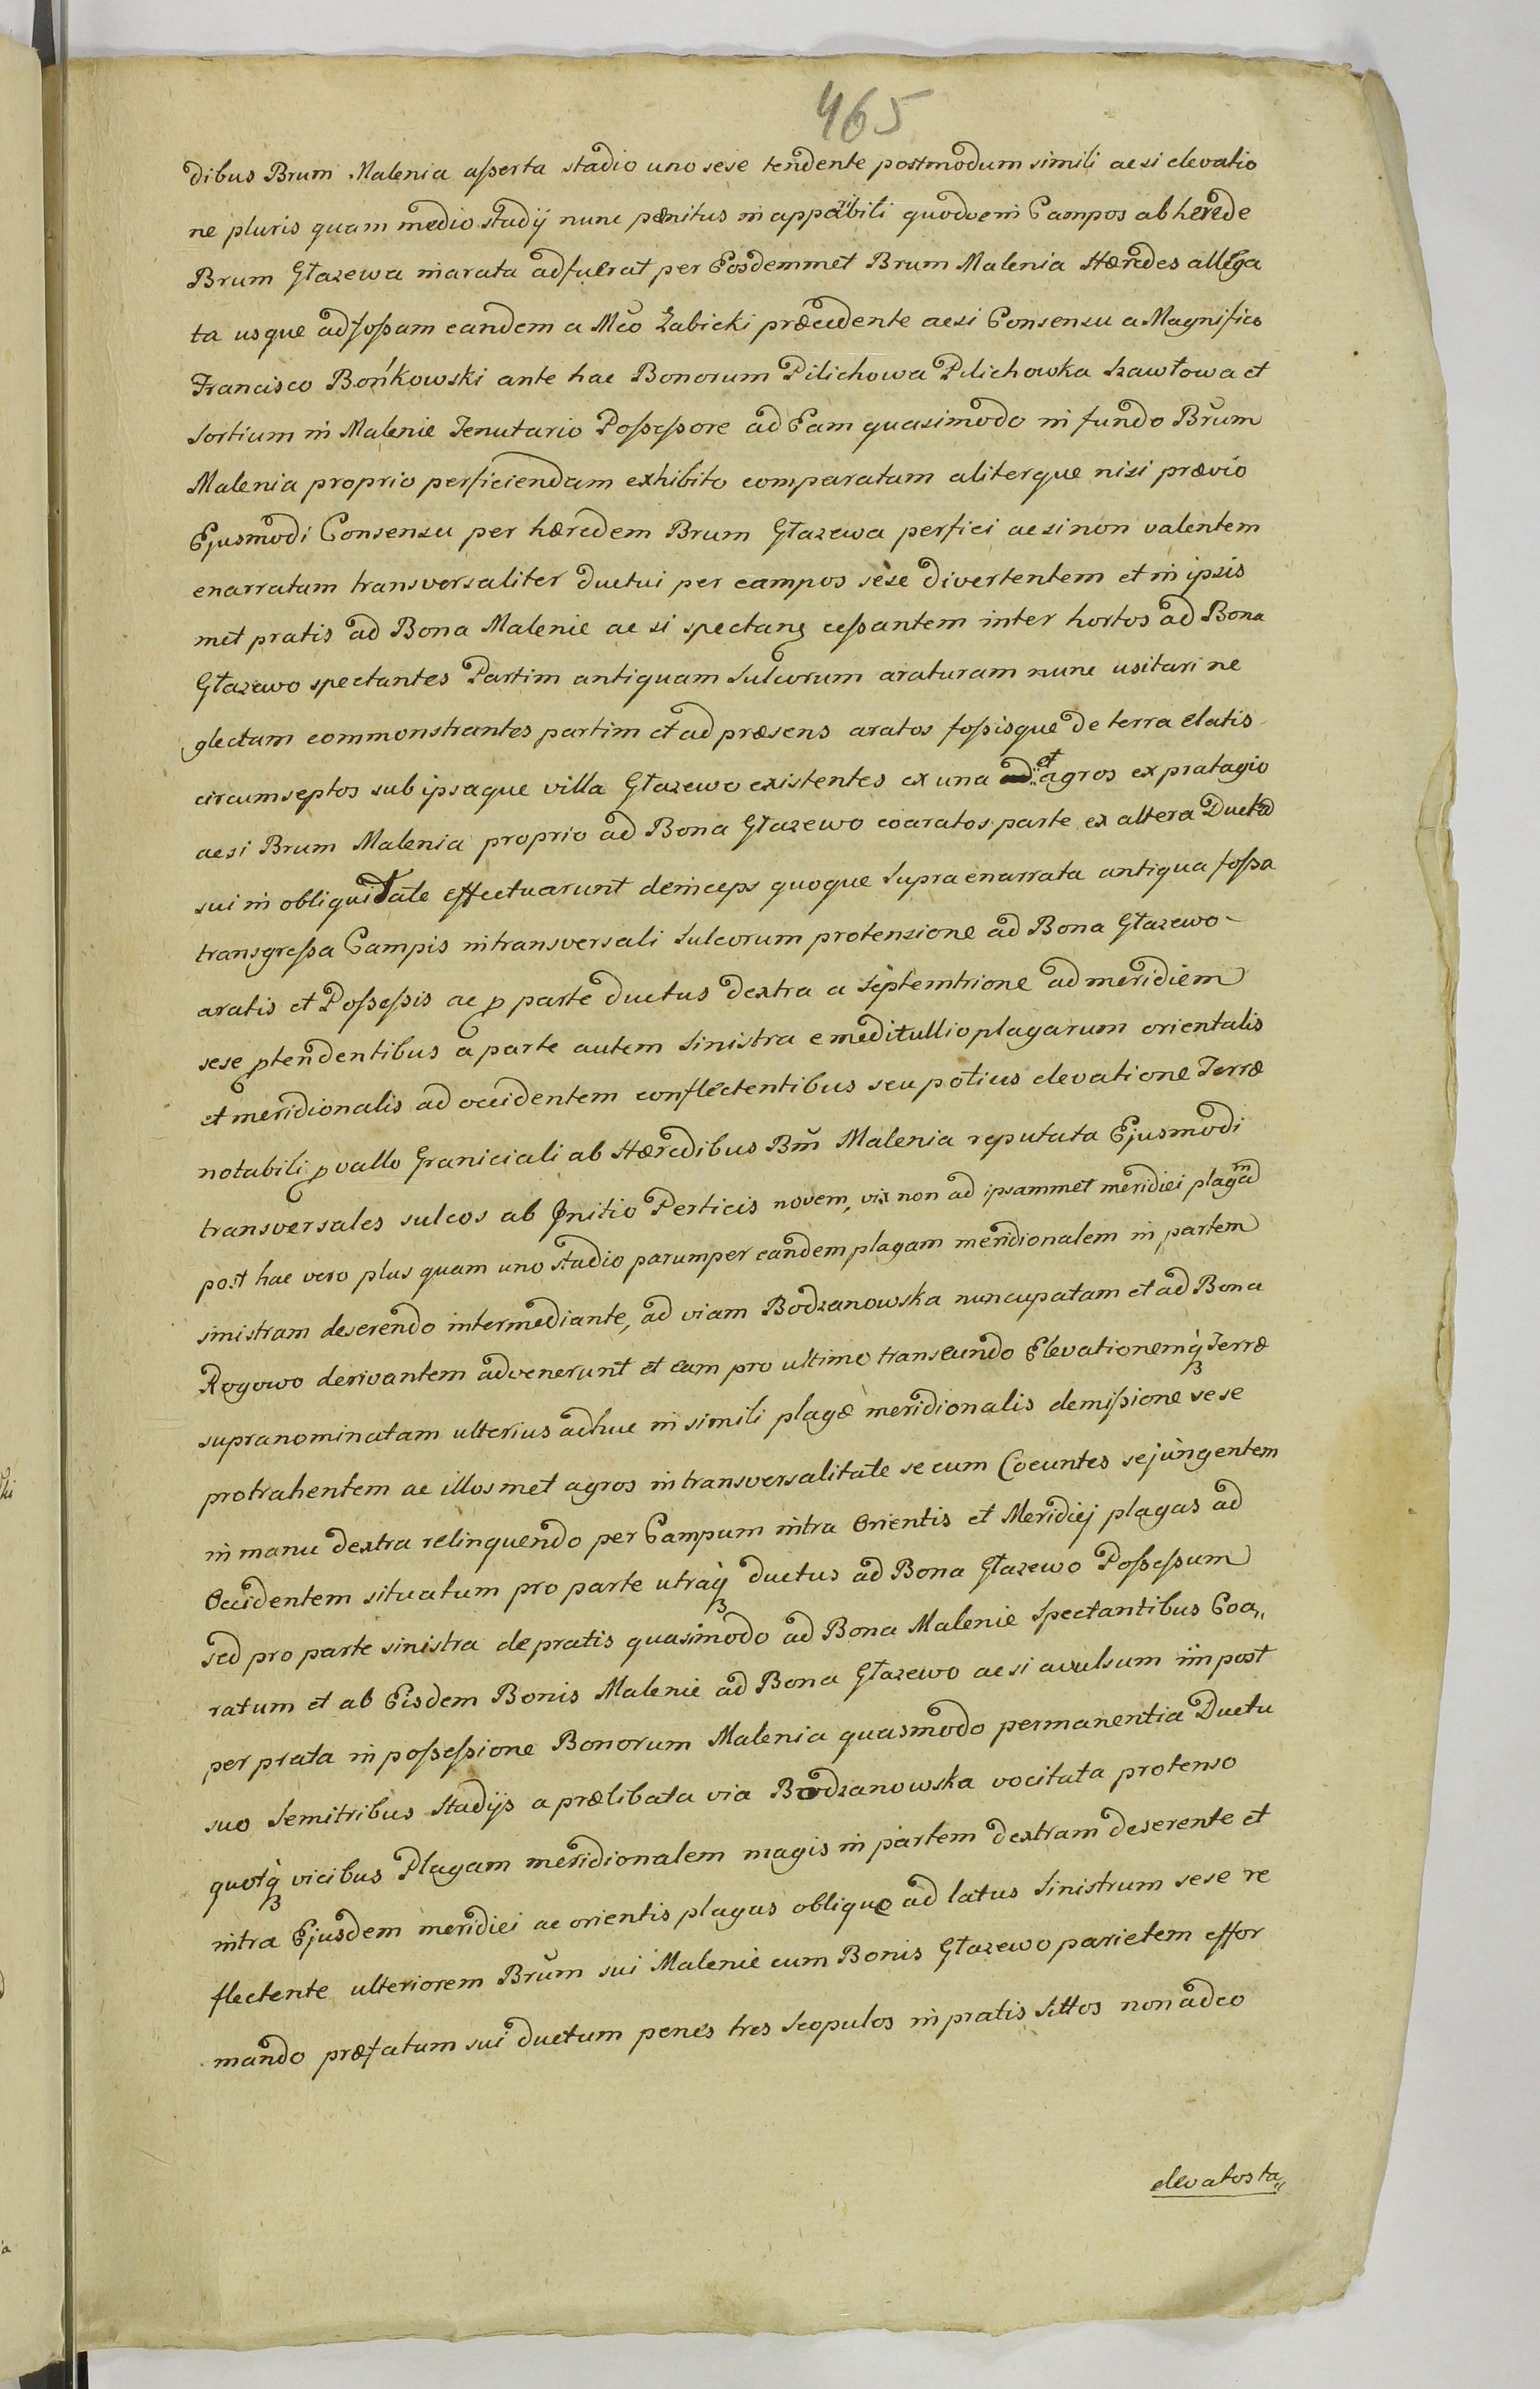 465
dibus Brum Malenia asserta stadio uno sese tendente postmodum simili ac si elevatio
ne pluris quam medio stadij nunc pænitus in apparibili quodveni Campos ab herede
Brum Głazewa inarata adfuerat per Eosdemmet Brum Malenia Hæredes allega
ta usque ad fossam eandem a Mco Żabicki præcedente acsi Consensu a Magnifico
Francisco Bońkowski ante hac Bonorum Pilichowa Pilichowka Szawłowa et
Sortium in Malenie Tenutario Possessore ad Eam quasimodo in fundo Brum
Malenia proprio perficiendam exhibito comparatam aliterque nisi prævio
Ejusmodi Consensu per hæredem Brum Głazewa perfici acsi non valentem
enarratam transversaliter ductui per campos sese divertentem et in ipsis
met pratis ad Bona Malenie ac si spectang cessantem inter hortos ad Bona
Głazewo spectantes Partim antiquam Sulcorum araturam nunc usitari ne
glectam commonstrantes partim et ad præsens aratos fossisque de terra elatis
circumseptos sub ipsaque villa Głazewo existentes ex una et agros ex pratagio
acsi Brum Malenia proprio ad Bona Głazewo coaratos parte ex altera Ducta
sui in obliquitate effectuarunt deinceps quoque Supra enarrata antiqua fossa
transgressa Campis in transversali Sulcorum protensione ad Bona Głazewo
aratis et Possessis ac p parte ductus dextra a Septemtrione ad meridiem
sese ptendentibus a parte autem Sinistra e meditullio plagarum orientalis
et meridionalis ad occidentem conflectentibus seu potius elevatione Terræ
notabili p vallo Graniciali ab Hæredibus Bm Malenia reputata Ejusmodi
transversales sulcos ab Initio Perticis novem, vix non ad ipsammet meridiei plagam
post hac vero plus quam uno stadio parumper eandem plagam meridionalem in partem
sinistram deserendo intermediante, ad viam Bodzanowska nuncupatam et ad Bona
Rogowo derivantem advenerunt et eam pro ultimo transeundo Elevationemq Terræ
supranominatam ulterius adhuc in simili plagæ meridionalis demissione sese
protrahentem ac illosmet agros in transversalitate secum Coeuntes sejungentem
in manu dextra relinquendo per Campum intra Orientis et Meridiej plagas ad
Occidentem situatum pro parte utraq ductus ad Bona Głazewo Possessum
sed pro parte sinistra de pratis quasimodo ad Bona Malenie Spectantibus Coa„
ratum et ab Eisdem Bonis Malenie ad Bona Głazewo acsi avulsum iinpost
per prata in possessione Bonorum Malenia quasmodo permanentia Ductu
suo Semitribus Stadijs a prælibata via Bodzanowska vocitata protenso
quotq vicibus Plagam meridionalem magis in partem dextram deserente et
intra Ejusdem meridiei ac orientis plagas oblique ad latus Sinistrum sese re
flectente ulteriorem Brum sui Malenie cum Bonis Głazewo parietem effor
mando præfatum sui ductum penes tres Scopulos in pratis Sittos non adeo
elevatos ta„